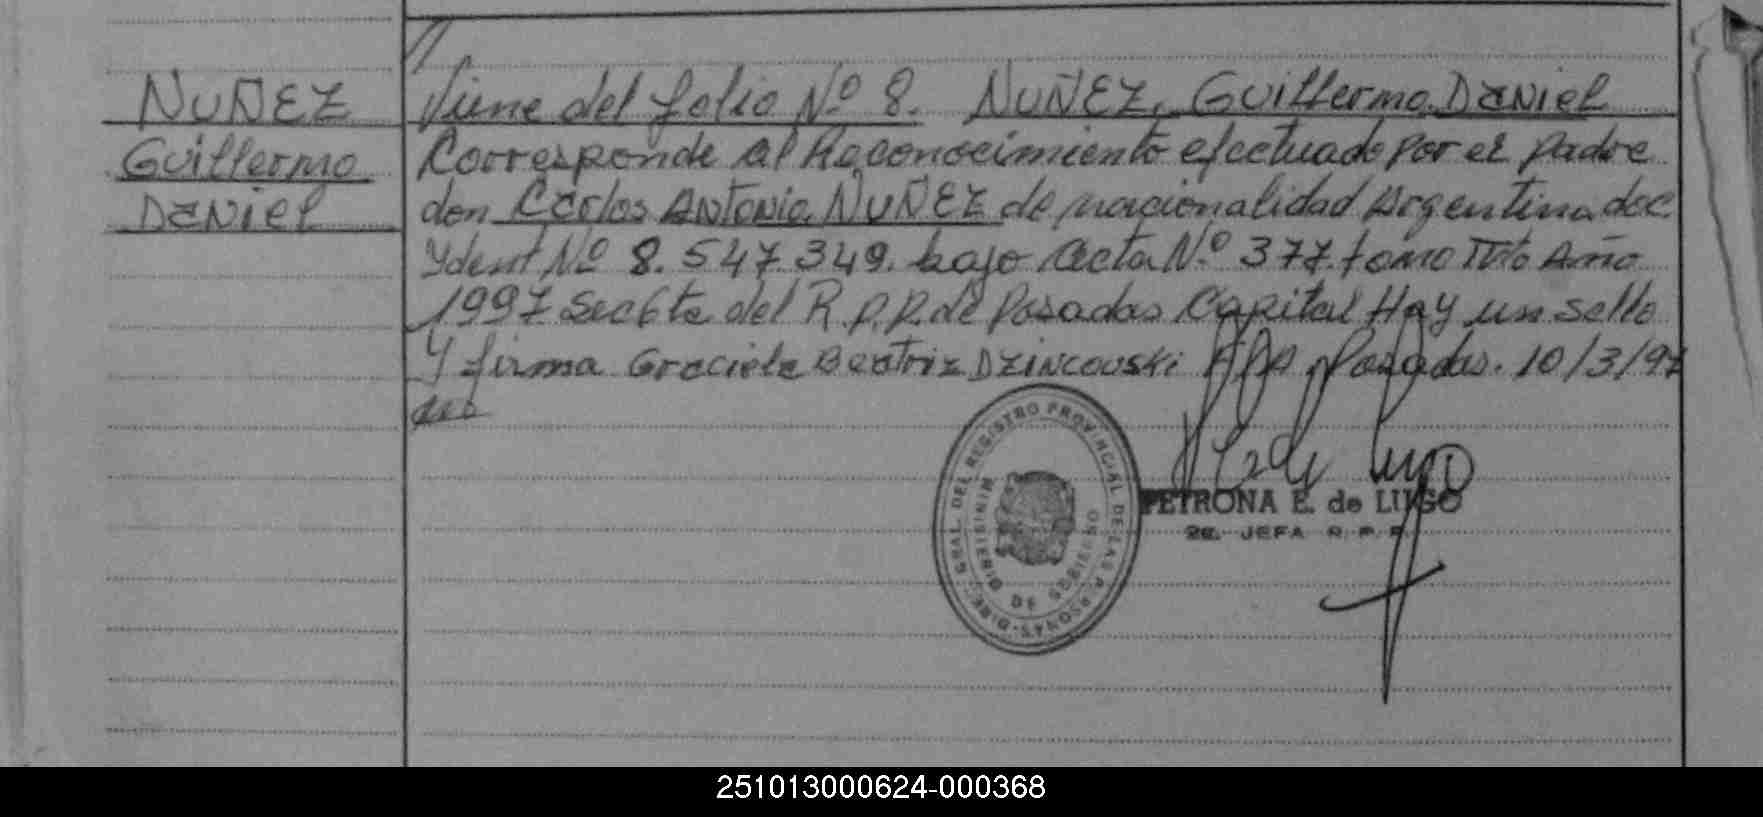 NUÑEZ
Guillermo
DANIEL
Viene del folio Nº 8. NUÑEZ, Guillermo DANIEL
Corresponde al Reconocimiento efectuado por el padre
don Carlos ANTONIO NUÑEZ de nacionalidad Argentina doc
Ydent Nº 8.547.349. bajo Acta Nº 377. tomo Año
1997 del R.P.P. de Posadas Capital Hay un sello
y firma Graciela Beatriz DZINCOUSKI Posadas. 10/3/97
DIREC. GRAL. DEL REGISTRO PROVINCIAL DE LAS PERSONAS
MINISTERIO DE GOBIERNO
PETRONA E. de LUGO
2a. JEFA R. P. P.
251013000624-000368